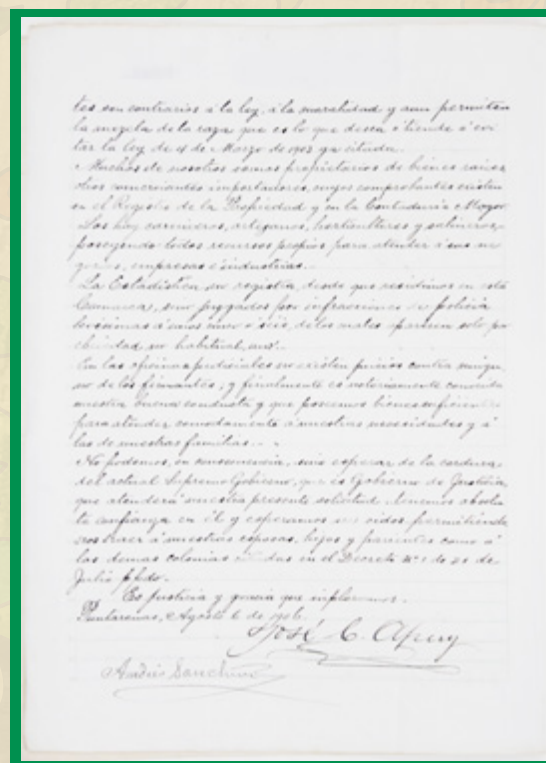 tes son contrarios á la ley, á la moralidad y aun permiten
la mezcla de la raza que es lo que desea ó tiende á evi
tar la ley de de Marzo de 1903 ya citada.
Muchos de nosotros somos propietarios de bienes raices
otros comerciantes importadores, cuyos comprobantes existen
en el Registro de la Propiedad y en la Contaduría Mayor
Los hay carniceros, artesanos, horticultores y salineros,
poseyendo todos recursos propios para atender á sus ne
gocios, empresas é industrias.
La Estadística no registra, desde que residimos en esta
Comarca, sino juzgados por infracciones de policía
á unos cinco ó seis, de los cuales aparecen solo por
no habitual, uno.
En las oficinas judiciales no existen juicios contra ningu
no de los firmantes; y finalmente es notoriamente conocida
nuestra buena conducta y que poseemos bienes suficientes
para atender comodamente á nuestras necesidades y á
las de nuestras familias.
No podemos, en consecuencia, sino esperar de la cordura
del actual Supremo Gobierno, que es Gobierno de Justicia,
que atenderá nuestra presente solicitud. Tenemos absolu
ta confianza en él y esperamos ser oidos permitiendo
nos traer á nuestras esposas, hijos y parientes como á
las demas colonias en el Decreto Nº 1 de de
Julio ppdo.
Es justicia y gracia que imploramos.
Puntarenas, Agosto 6 de 1906.
José C. Apuy
Andrés Sanchun